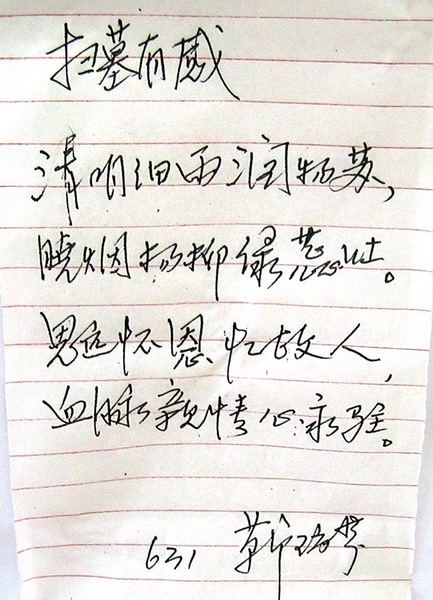 扫墓有感
清明细雨润物苏，
晓烟杨柳绿葱。
思远怀恩忆故人，
血脉亲情心永驻。
631 靳